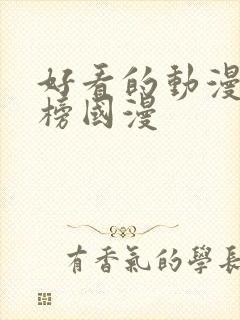 好看的動漫
榜國漫
有香氣的學長